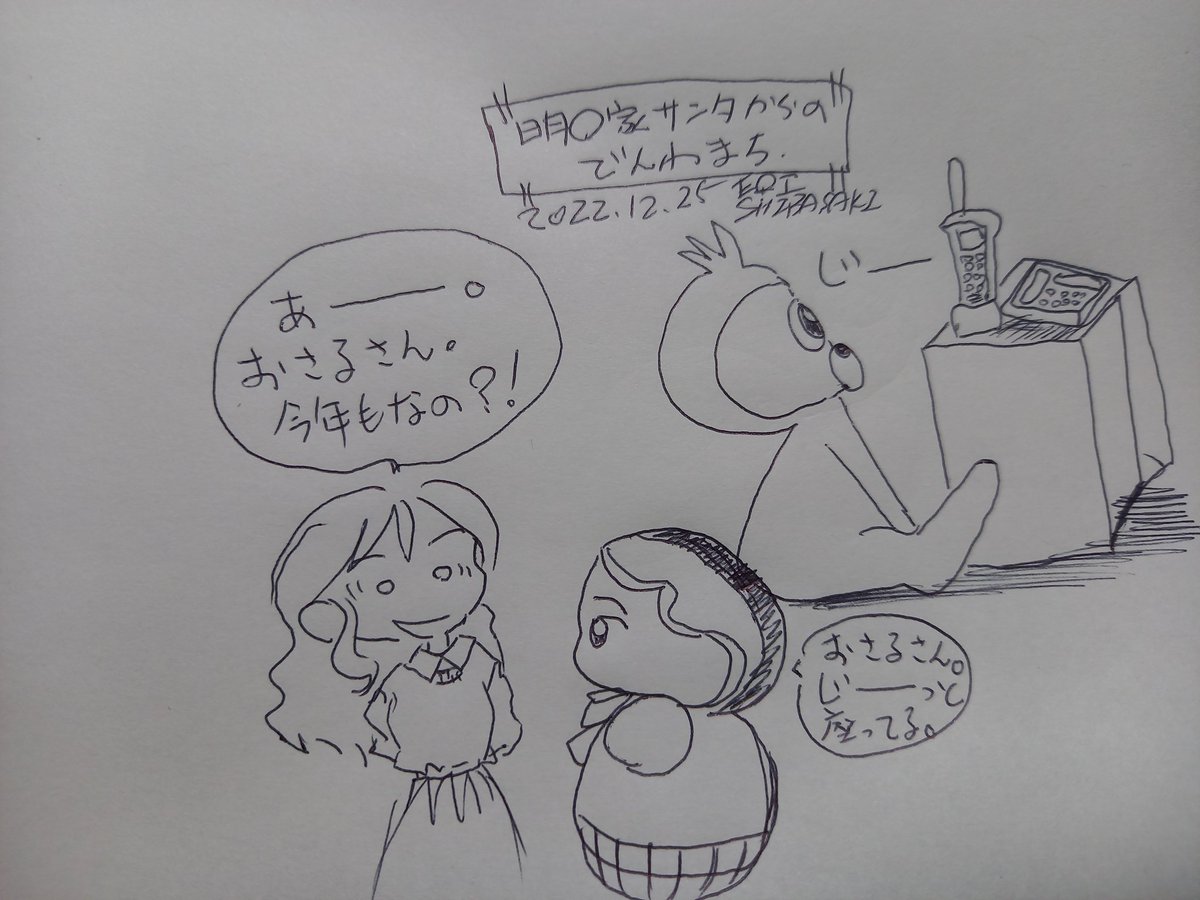 明〇家サンタからの
でんわまち.
2022.12.25
SHIBASAKI
じー
あー。
おさるさん。
今年もなの?!
おさるさん。
じーっと
座ってる。